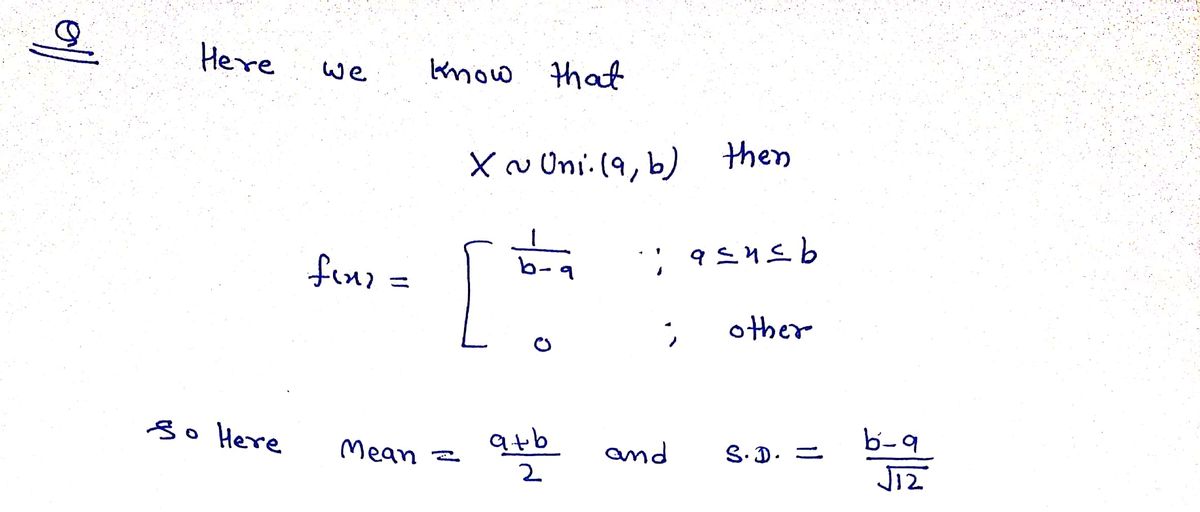 Q
Here we know that
X ~ Uni.(a, b) then
f(x) = [ 1/(b-a) ; a ≤ x ≤ b
0 ; other
So Here Mean = (a+b)/2 and S.D. = (b-a)/√12